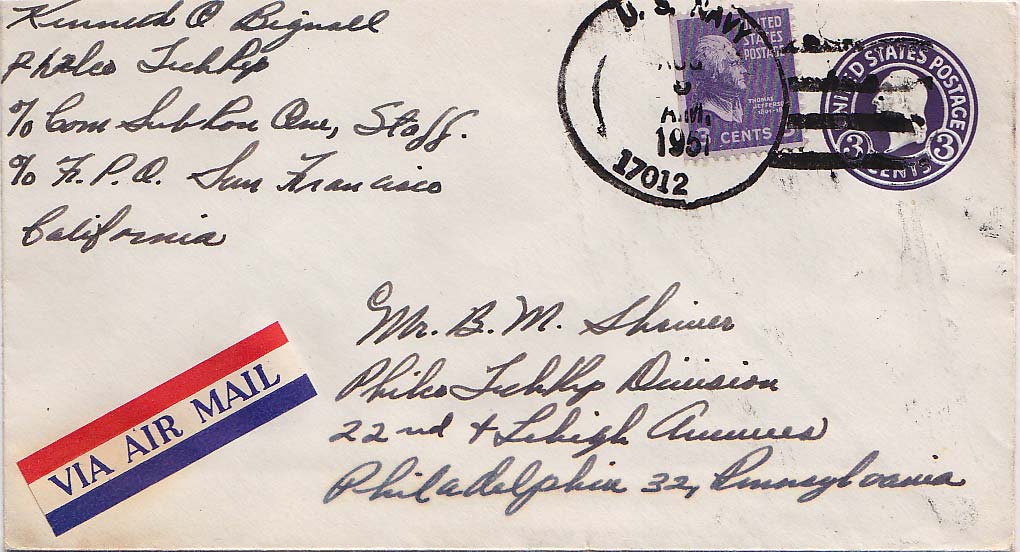 Kenneth O Bignall
Philco TechRep
% Com SubRon One, Staff.
% F.P.O. San Francisco
California
U. S. NAVY
AUG
A.M.
1951
17012
UNITED
STATES
POSTAGE
THOMAS
JEFFERSON
3 CENTS 3
UNITED STATES POSTAGE
3 CENTS 3
Mr. B. M. Shriver
Philco TechRep Division
22nd & Lehigh Avenues
Philadelphia 32, Pennsylvania
VIA AIR MAIL